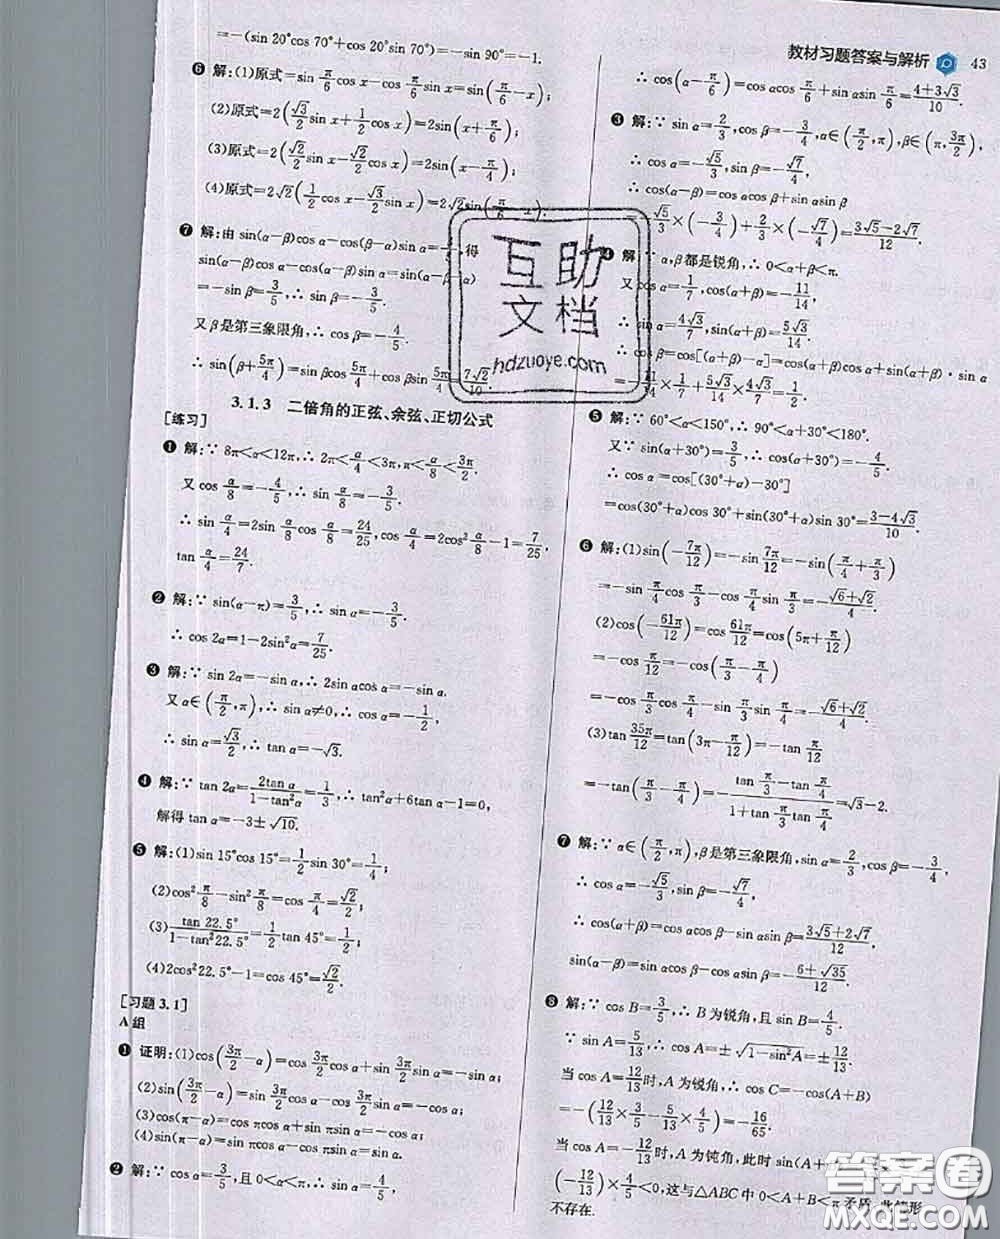 教材习题答案与解析 43
=-(sin 20°cos 70°+cos 20°sin 70°)=-sin 90°=-1.
❻ 解:(1)原式=sin π/6 cos x-cos π/6 sin x=sin(π/6-x);
(2)原式=2(√3/2 sin x+1/2 cos x)=2sin(x+π/6);
(3)原式=2(√2/2 sin x-√2/2 cos x)=2sin(x-π/4);
(4)原式=2√2(1/2 cos x-√3/2 sin x)=2√2sin(π/6-x).
❼ 解:由 sin(α-β)cos α-cos(β-α)sin α= 得
sin(α-β)cos α-cos(α-β)sin α=sin(α-β-α)
=-sin β=3/5,∴ sin β=-3/5.
又 β 是第三象限角,∴ cos β=-4/5.
∴ sin(β+5π/4)=sin βcos 5π/4+cos βsin 5π/4=7√2/10.
3.1.3 二倍角的正弦、余弦、正切公式
[练习]
❶ 解:∵ 8π<α<12π,∴ 2π<α/4<3π,π<α/8<3π/2.
又 cos α/8=-4/5,∴ sin α/8=-3/5.
∴ sin α/4=2sin α/8 cos α/8=24/25,cos α/4=2cos² α/8-1=7/25,
tan α/4=24/7.
❷ 解:∵ sin(α-π)=3/5,∴ sin α=-3/5.
∴ cos 2α=1-2sin²α=7/25.
❸ 解:∵ sin 2α=-sin α,∴ 2sin αcos α=-sin α.
又 α∈(π/2,π),∴ sin α≠0,∴ cos α=-1/2,
∴ sin α=√3/2,∴ tan α=-√3.
❹ 解:∵ tan 2α=2tan α/(1-tan²α)=1/3,∴ tan²α+6tan α-1=0,
解得 tan α=-3±√10.
❺ 解:(1)sin 15°cos 15°=1/2 sin 30°=1/4;
(2)cos² π/8-sin² π/8=cos π/4=√2/2;
(3)tan 22.5°/(1-tan²22.5°)=1/2 tan 45°=1/2;
(4)2cos²22.5°-1=cos 45°=√2/2.
[习题 3.1]
A 组
❶ 证明:(1)cos(3π/2-α)=cos 3π/2 cos α+sin 3π/2 sin α=-sin α;
(2)sin(3π/2-α)=sin 3π/2 cos α-cos 3π/2 sin α=-cos α;
(3)cos(π-α)=cos πcos α+sin πsin α=-cos α;
(4)sin(π-α)=sin πcos α-cos πsin α=sin α.
❷ 解:∵ cos α=3/5,且 0<α<π,∴ sin α=4/5,
∴ cos(α-π/6)=cos αcos π/6+sin αsin π/6=(4+3√3)/10.
❸ 解:∵ sin α=2/3,cos β=-3/4,α∈(π/2,π),β∈(π,3π/2),
∴ cos α=-√5/3,sin β=-√7/4,
∴ cos(α-β)=cos αcos β+sin αsin β
√5/3×(-3/4)+2/3×(-√7/4)=(3√5-2√7)/12.
❹ 解:∵ α,β 都是锐角,∴ 0<α+β<π.
又 cos α=1/7,cos(α+β)=-11/14,
∴ sin α=4√3/7,sin(α+β)=5√3/14.
∴ cos β=cos[(α+β)-α]=cos(α+β)cos α+sin(α+β)·sin α
=-11/14×1/7+5√3/14×4√3/7=1/2.
❺ 解:∵ 60°<α<150°,∴ 90°<α+30°<180°.
又∵ sin(α+30°)=3/5,∴ cos(α+30°)=-4/5.
∴ cos α=cos[(30°+α)-30°]
=cos(30°+α)cos 30°+sin(30°+α)sin 30°=(3-4√3)/10.
❻ 解:(1)sin(-7π/12)=-sin 7π/12=-sin(π/4+π/3)
=-sin π/4 cos π/3-cos π/4 sin π/3=-(√6+√2)/4.
(2)cos(-61π/12)=cos 61π/12=cos(5π+π/12)
=-cos π/12=-cos(π/3-π/4)
=-cos π/3 cos π/4-sin π/3 sin π/4=-(√6+√2)/4.
(3)tan 35π/12=tan(3π-π/12)=-tan π/12
=-tan(π/3-π/4)=-(tan π/3-tan π/4)/(1+tan π/3 tan π/4)=√3-2.
❼ 解:∵ α∈(π/2,π),β 是第三象限角,sin α=2/3,cos β=-3/4,
∴ cos α=-√5/3,sin β=-√7/4,
∴ cos(α+β)=cos αcos β-sin αsin β=(3√5+2√7)/12,
sin(α-β)=sin αcos β-cos αsin β=-(6+√35)/12.
❽ 解:∵ cos B=3/5,∴ B 为锐角,且 sin B=4/5.
∵ sin A=5/13,∴ cos A=±√(1-sin²A)=±12/13.
当 cos A=12/13时,A 为锐角,∴ cos C=-cos(A+B)
=-(12/13×3/5-5/13×4/5)=-16/65.
当 cos A=-12/13时,A 为钝角,此时 sin(A+
(-12/13)×4/5<0,这与△ABC 中 0<A+B<π 矛盾,此情形
不存在.
互助
文档
hdzuoye.com
答案圈
MXQE.COM